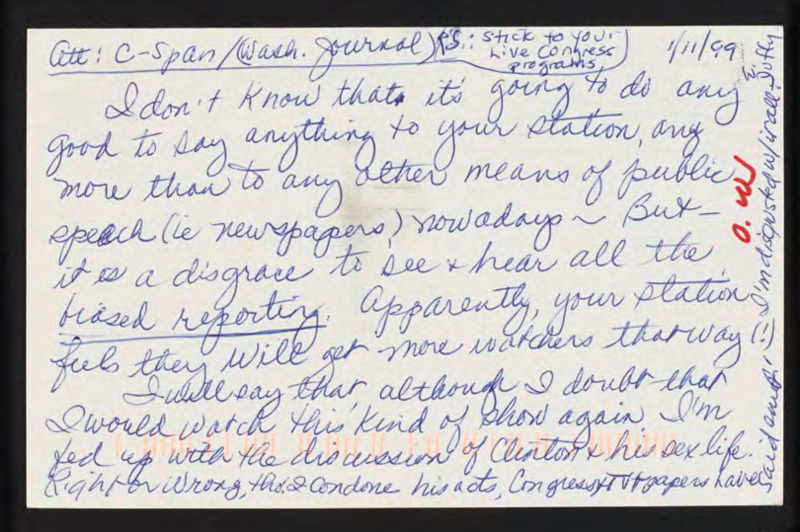 Att: C-Span/(Wash. Journal)
P.S.: Stick to your
Live Congress
programs.
1/11/99
I don't know that it's going to do any
good to say anything to your station, any
more than to any other means of public
speech (ie newspapers) nowadays ~ But -
it is a disgrace to see + hear all the
biased reporting. Apparently, your station
feels they will get more watchers that way (!)
I will say that, although I doubt that
I would watch this kind of show again, I'm
fed up with the discussion of Clinton + his sex life.
Right or wrong, tho, I condone his acts, Congress + TV + papers have
said enuf! I'm disgusted w/ it all.
O. W